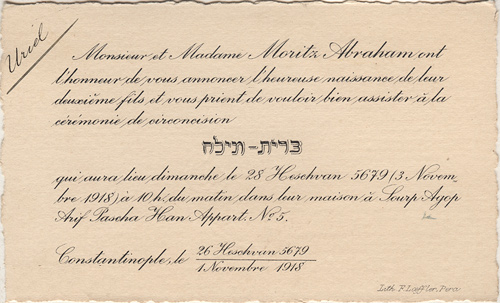 Uriel
Monsieur et Madame Moritz Abraham ont
l'honneur de vous annoncer l'heureuse naissance de leur
deuxième fils et vous prient de vouloir bien assister à la
cérémonie de circoncision
ברית-מילה
qui aura lieu dimanche le 28 Heschvan 5679 (3 Novem-
bre 1918) à 10 h. du matin dans leur maison à Sourp Agop
Arif Pascha Han Appart. No 5.
Constantinople, le 26 Heschvan 5679
1 Novembre 1918
Lith. F. Lœffler, Pera